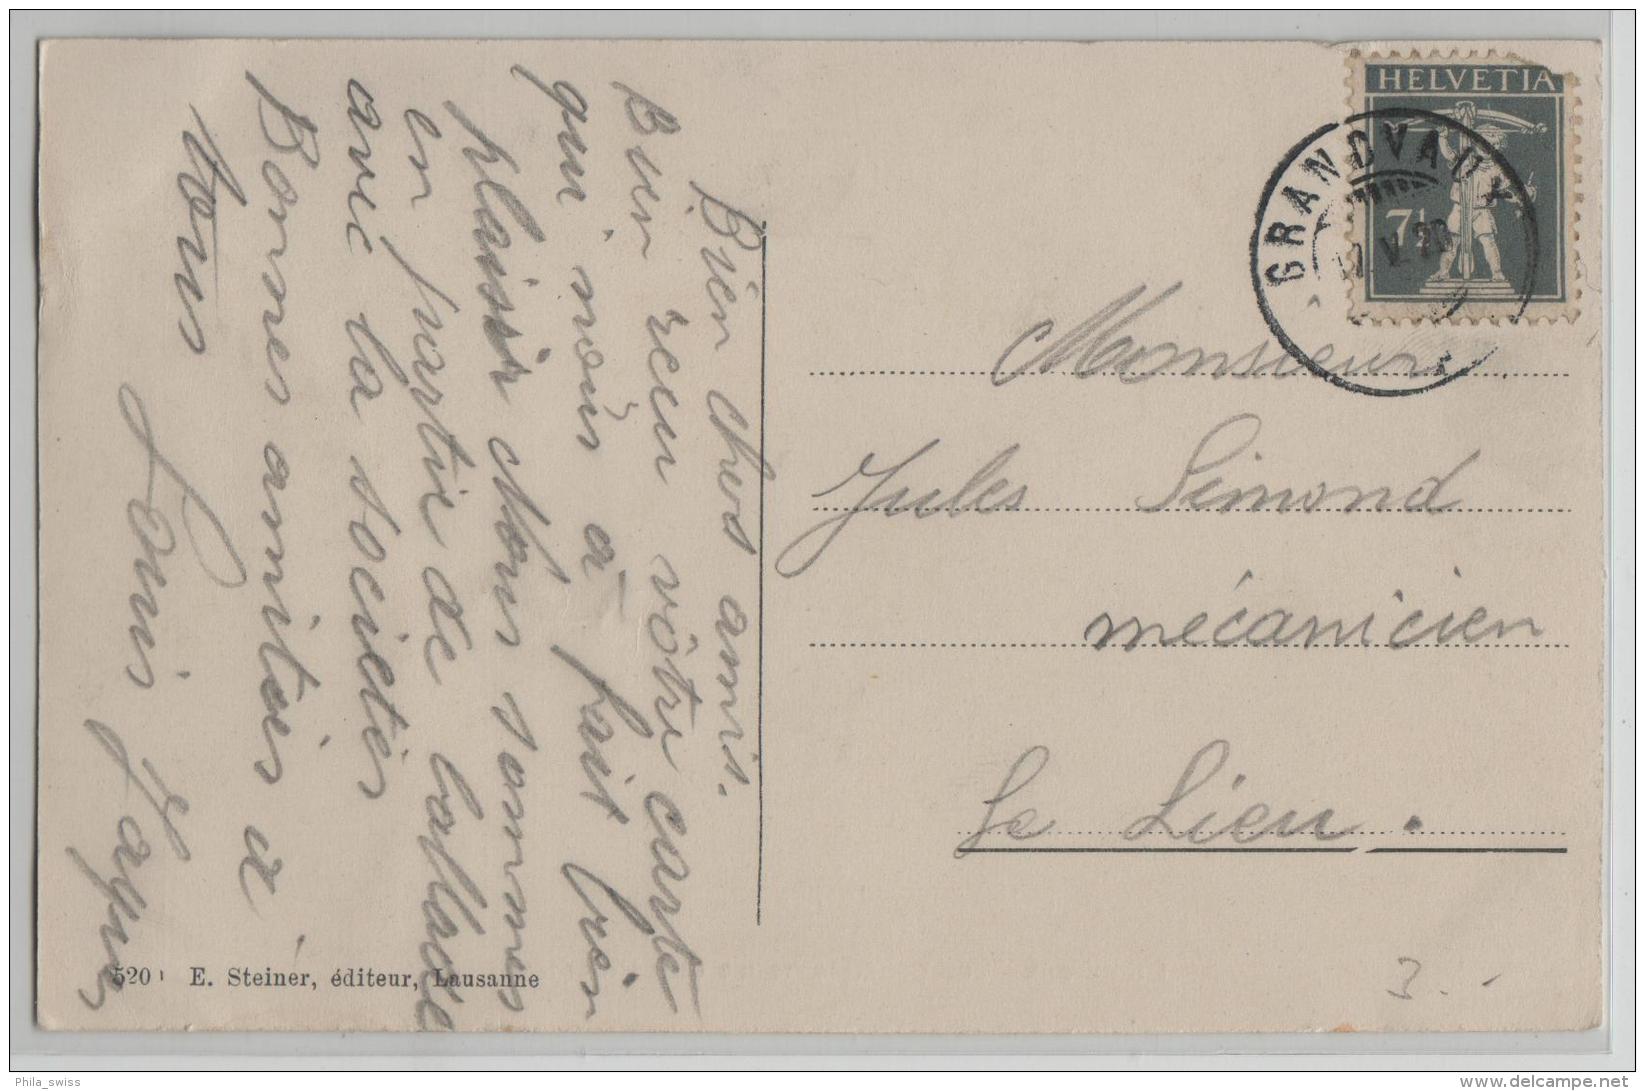 Bien chers amis.
Bien recu vôtre carte
qui nous à fait bien
plaisir Nous sommes
en partie de ballade
avec la societés
Bonnes amitiés à
tous
Louis
HELVETIA
7½
GRANDVAUX
V. 20
Monsieur
Jules Simond
mécanicien
Le Lieu.
520 E. Steiner, éditeur, Lausanne
3.-
Phila_swiss
delcampe.net